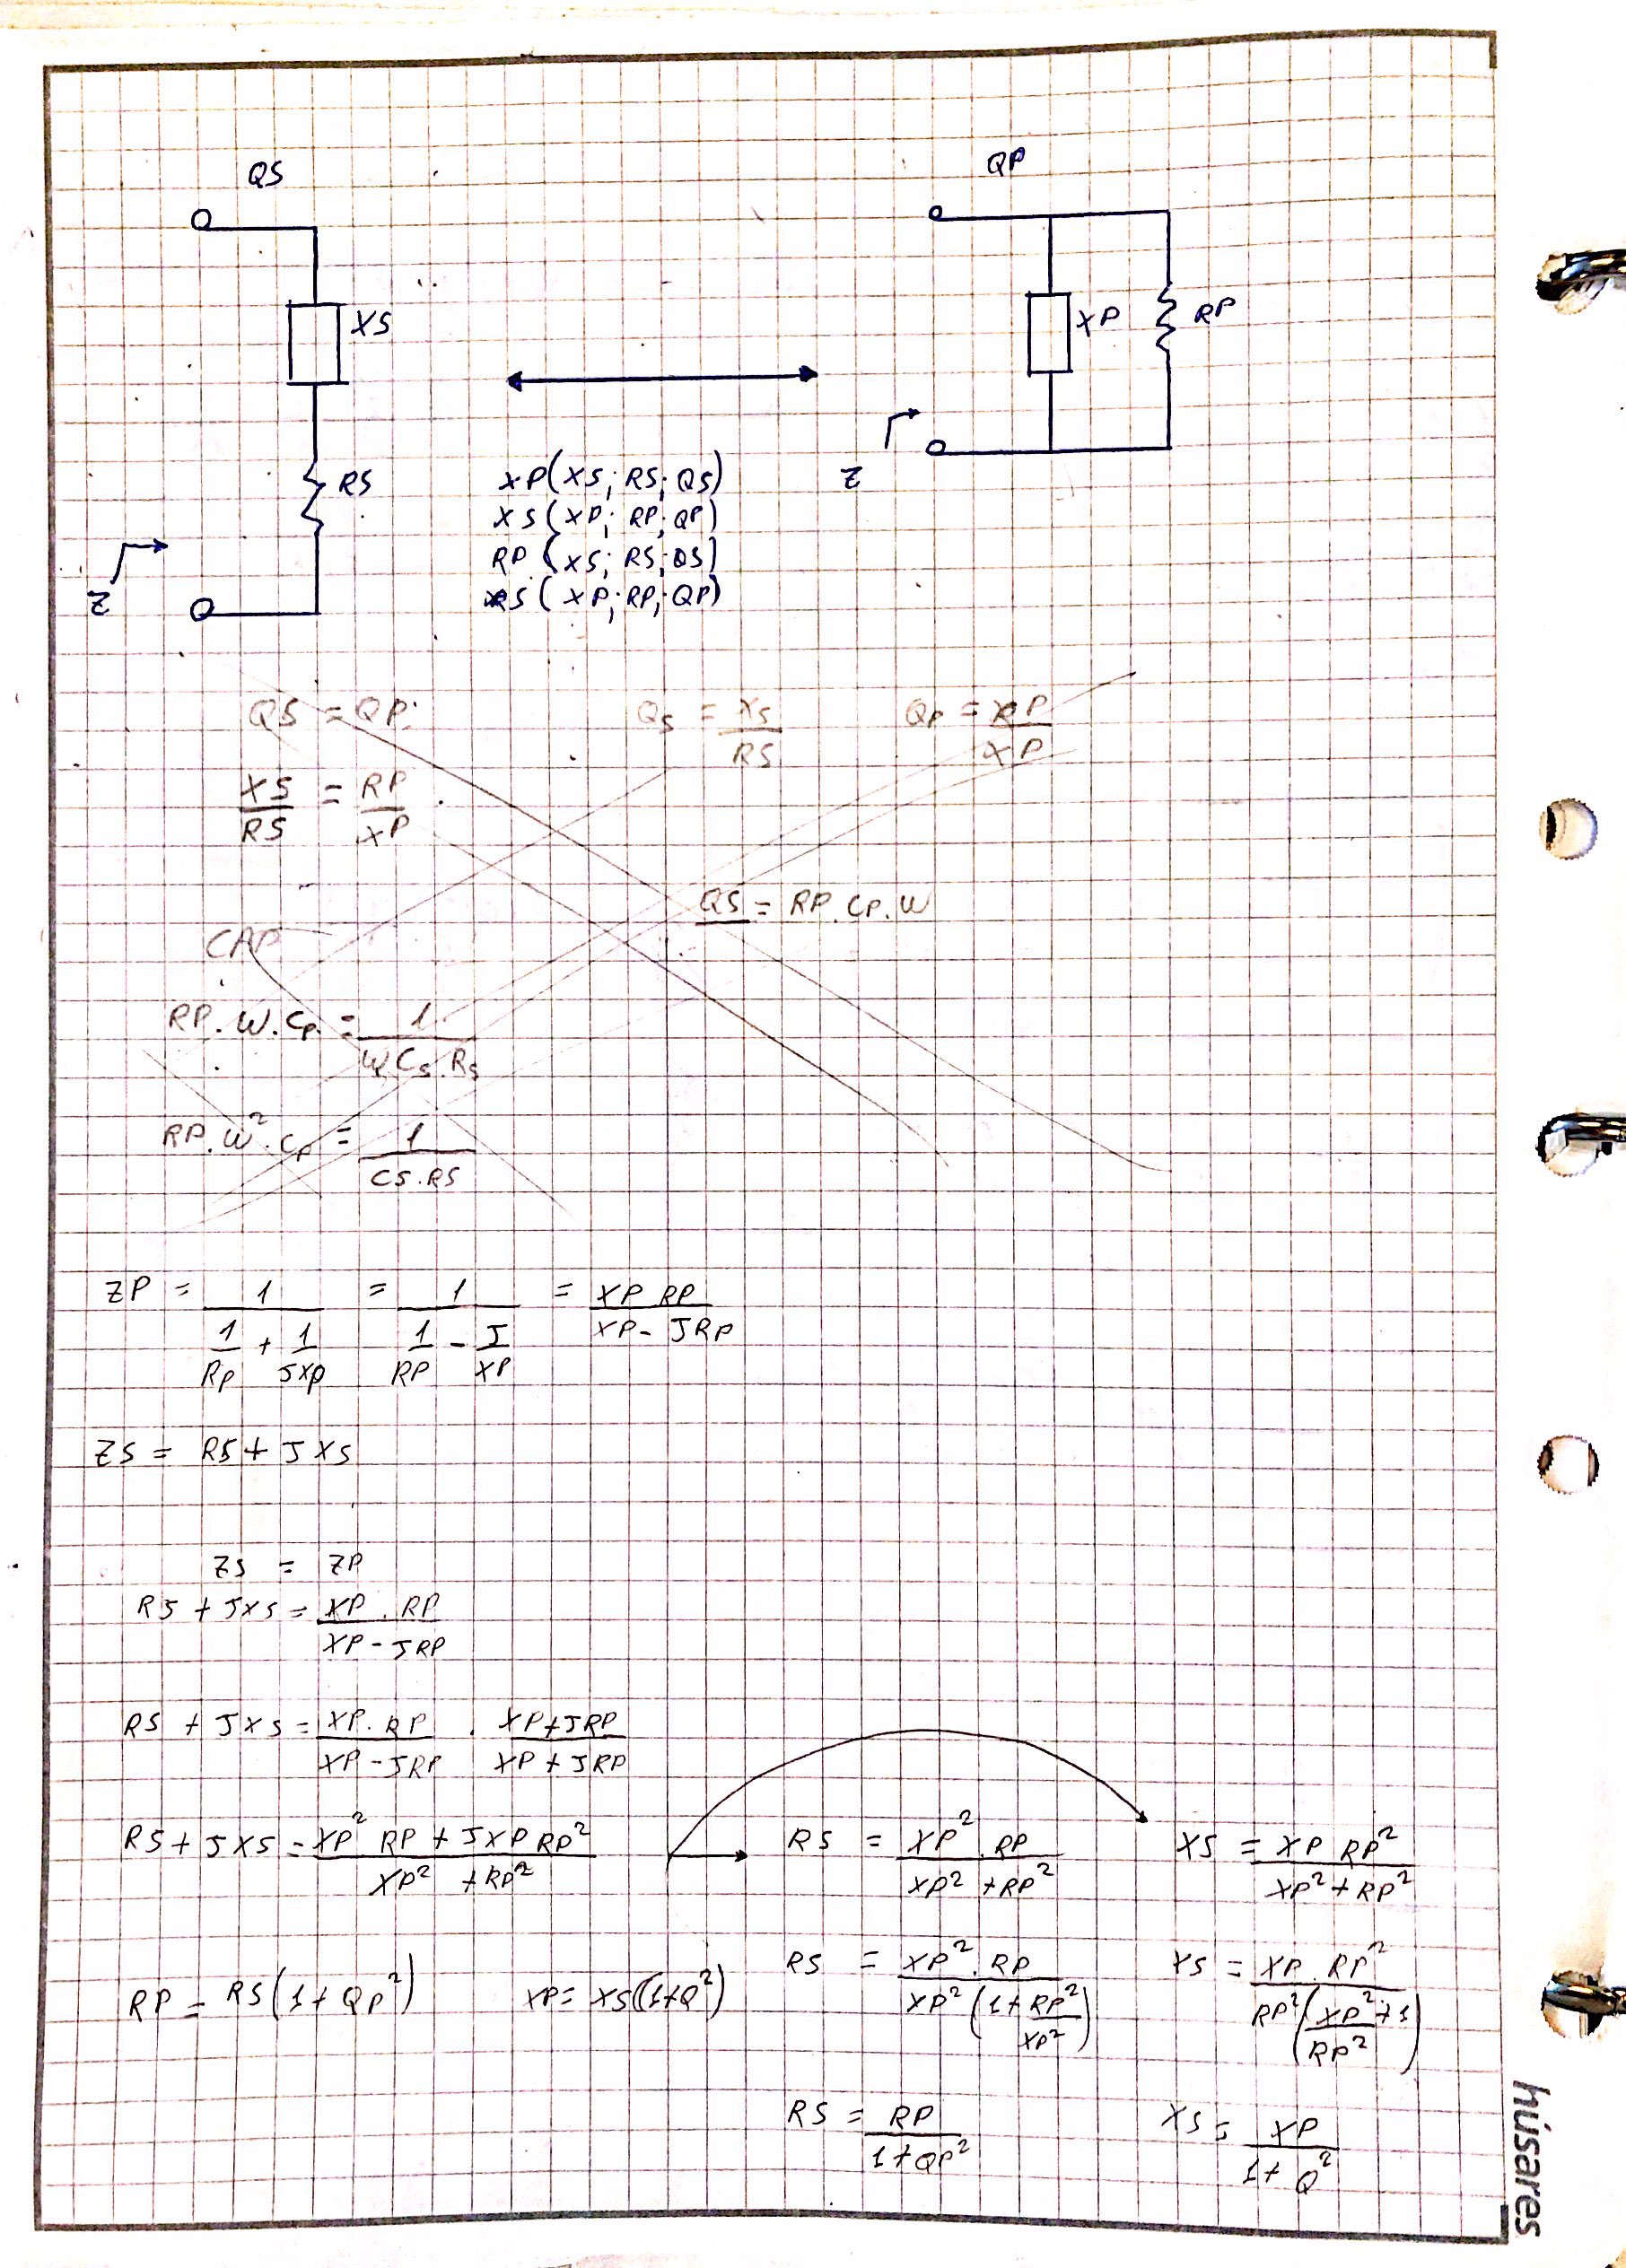 QS
QP
XS
XP
RP
RS
Z
Z
XP(XS; RS; QS)
XS(XP; RP; QP)
RP(XS; RS; QS)
RS(XP; RP; QP)
QS = QP
Qs = Xs/RS
QP = RP/XP
XS/RS = RP/XP
QS = RP.CP.W
CAP
RP.W.Cp = 1/(W.Cs.Rs)
RP.W².Cp = 1/(CS.RS)
ZP = 1/(1/RP + 1/JXP) = 1/(1/RP - J/XP) = XP RP/(XP - JRP)
ZS = RS + JXS
ZS = ZP
RS + JXS = XP.RP/(XP - JRP)
RS + JXS = XP.RP/(XP - JRP) . (XP + JRP)/(XP + JRP)
RS + JXS = (XP² RP + JXP RP²)/(XP² + RP²)
RS = XP².RP/(XP² + RP²)
XS = XP RP²/(XP² + RP²)
RP = RS(1 + QP²)
XP = XS((1+Q²)
RS = XP².RP/(XP²(1 + RP²/XP²))
XS = XP.RP²/(RP²(XP²/RP² + 1))
RS = RP/(1 + QP²)
XS = XP/(1 + Q²)
húsares